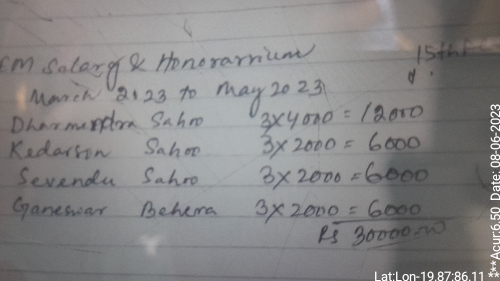 EM Salary & Honorarrium
15th
March 2023 to May 2023
Dharmendra Sahoo 3X4000 = 12000
Kedarson Sahoo 3X2000 = 6000
Sevendu Sahoo 3X2000 = 6000
Ganeswar Behera 3X2000 = 6000
Rs 30000.00
Lat:Lon-19.87:86.11
***Acur:6.50 Date: 08-06-2023